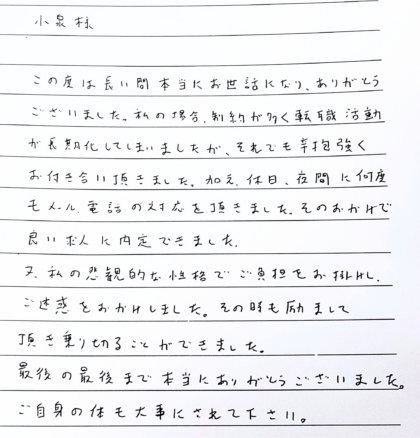 小泉様
この度は長い間本当にお世話になり、ありがとう
ございました。私の場合、制約が多く転職活動
が長期化してしまいましたが、それでも辛抱強く
お付き合い頂きました。加え、休日、夜間に何度
もメール、電話の対応を頂きました。そのおかげで
良い求人に内定できました。
又、私の悲観的な性格でご負担をお掛けし、
ご迷惑をおかけしました。その時も励まして
頂き乗り切ることができました。
最後の最後まで本当にありがとうございました。
ご自身の体も大事にされて下さい。